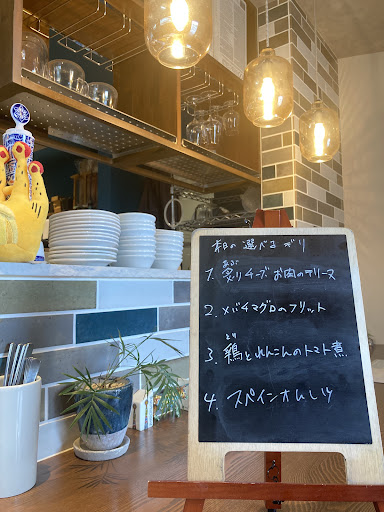 本日の選べるデリ
あぶ
1. 炙りチーズお肉のテリーヌ
2. メバチマグロのフリット
とり
3. 鶏とれんこんのトマト煮
4. スペインオムレツ